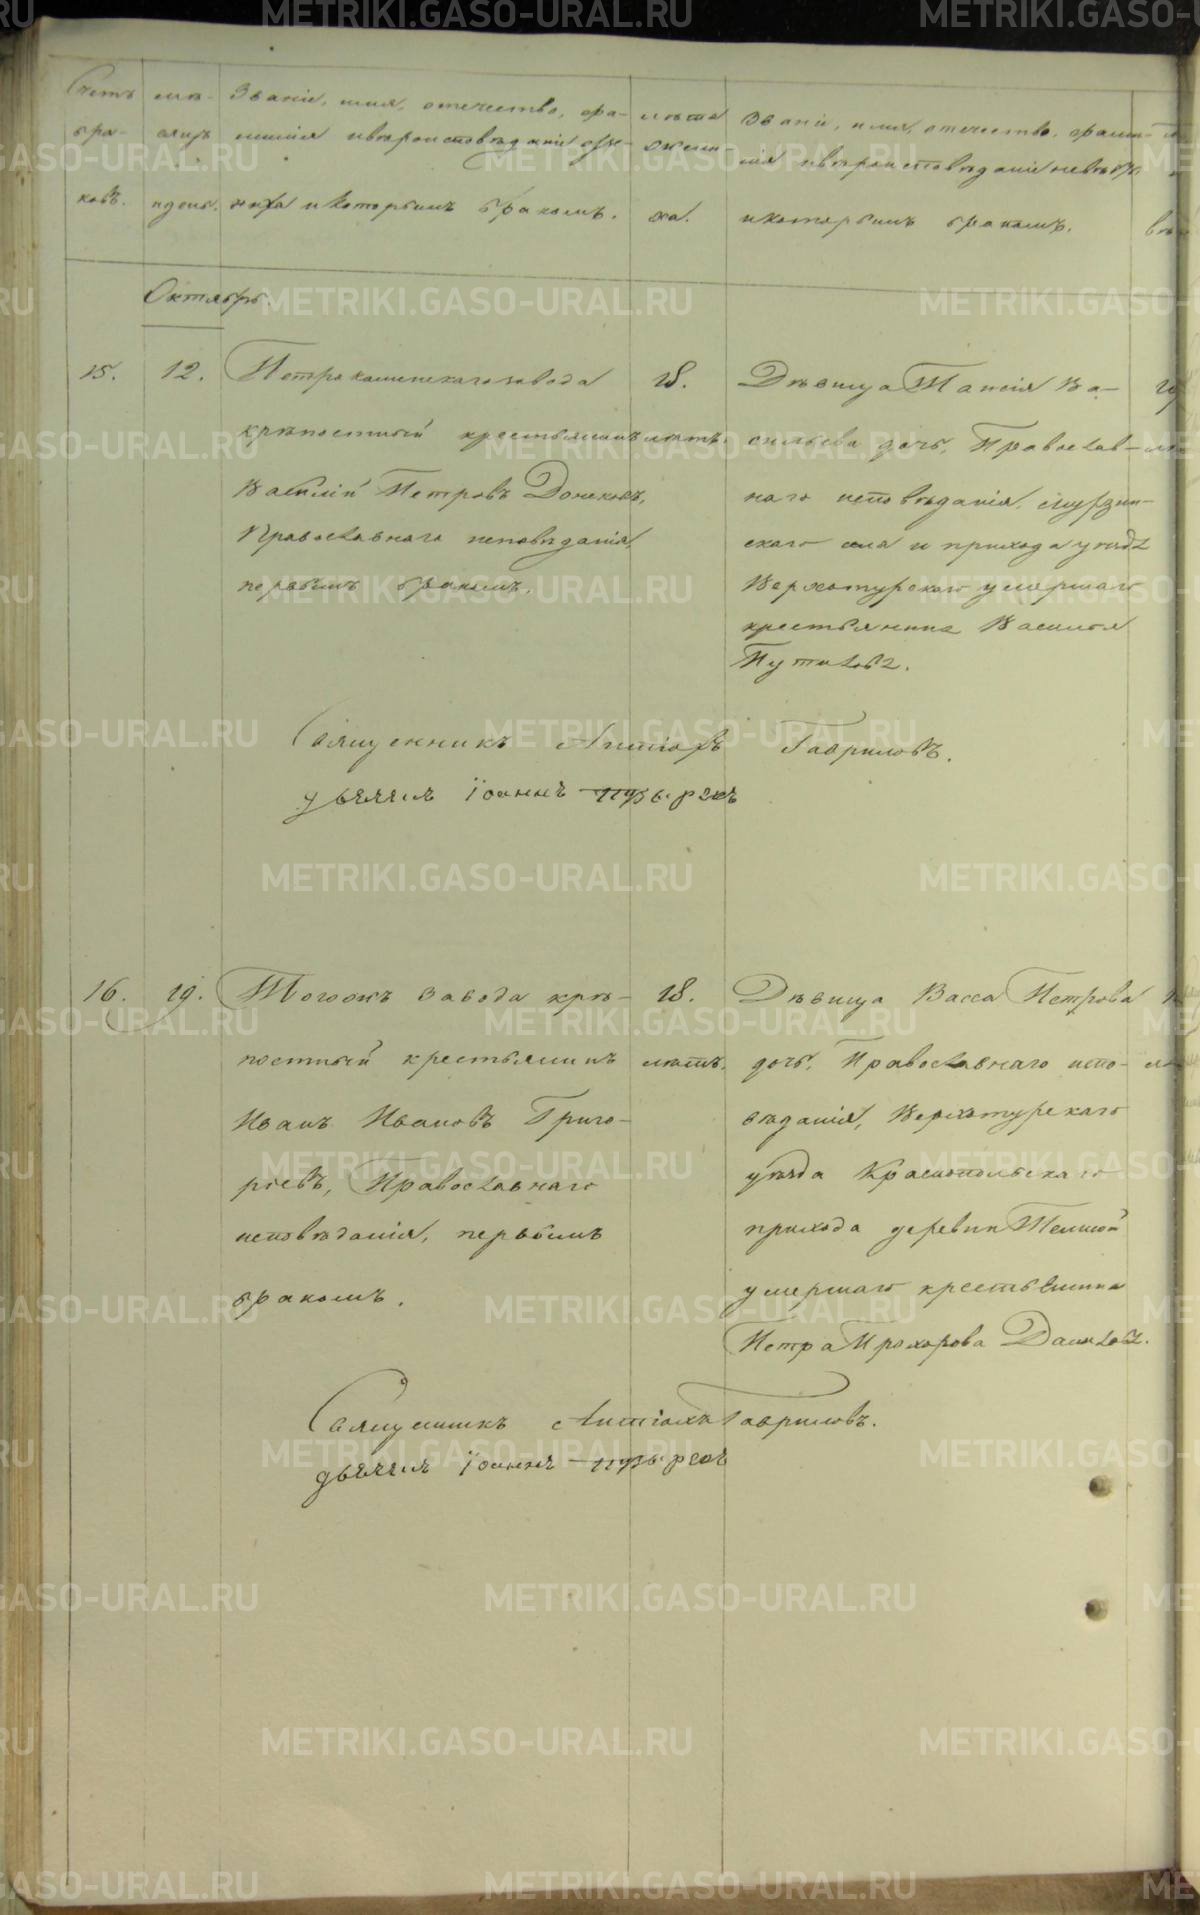 Счетъ бра- ковъ.
мѣ- сяцъ и день.
Званіе, имя, отечество, фа-
милія и вѣроисповѣданіе же-
ниха и которымъ бракомъ.
лѣта жени ха.
Званіе, имя, отечество, фами-
лія и вѣроисповѣданіе невѣсты
и которымъ бракомъ.
Октябрь.
15. 12.
Петрокаменскаго завода
крѣпостный крестьянинъ
Василій Петровъ
Православнаго исповѣданія,
первымъ бракомъ.
18. лѣтъ.
Дѣвица Таисія Ва-
сильева дочь, Православ-
наго исповѣданія, Мурзин-
скаго села и прихода уѣзда
Верхотурскаго умершаго
крестьянина Василья
Путилова.
Священникъ Антіохъ Гавриловъ.
дьячекъ Іоаннъ
16. 19.
Тогожъ завода крѣ-
постный крестьянинъ
Иванъ Ивановъ Григо-
рьевъ, Православнаго
исповѣданія, первымъ
бракомъ.
18. лѣтъ.
Дѣвица Васса Петрова
дочь, Православнаго испо-
вѣданія, Верхотурскаго
уѣзда Краснопольскаго
прихода деревни
умершаго крестьянина
Петра Прохорова Данилова.
Священникъ Антіохъ Гавриловъ.
дьячекъ Іоаннъ
METRIKI.GASO-URAL.RU